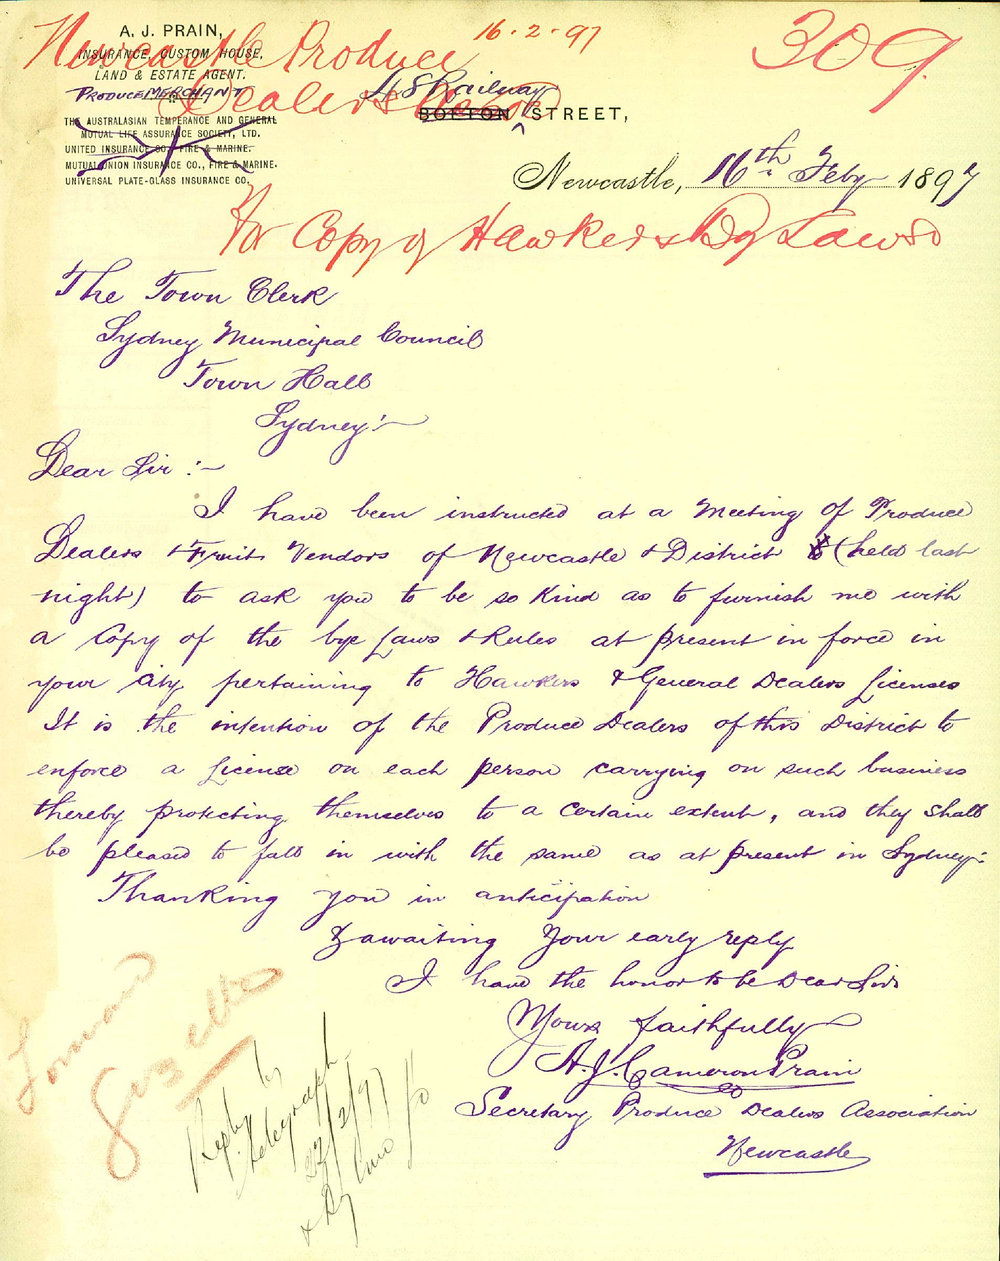 Newcastle Produce
Dealers Assoc
16.2.97
309
A. J. PRAIN,
INSURANCE, CUSTOM HOUSE,
LAND & ESTATE AGENT.
PRODUCE MERCHANT
THE AUSTRALASIAN TEMPERANCE AND GENERAL
MUTUAL LIFE ASSURANCE SOCIETY, LTD.
UNITED INSURANCE CO., FIRE & MARINE.
MUTUAL UNION INSURANCE CO., FIRE & MARINE.
UNIVERSAL PLATE-GLASS INSURANCE CO.
48 Railway
BOLTON STREET,
Newcastle, 16th Feby 1897
For Copy of Hawkers By Laws
The Town Clerk
Sydney Municipal Council
Town Hall
Sydney:—
Dear Sir:—
I have been instructed at a Meeting of Produce
Dealers & Fruit Vendors of Newcastle & District (held last
night) to ask you to be so kind as to furnish me with
a Copy of the bye Laws & Rules at present in force in
your City pertaining to Hawkers & General Dealers Licenses
It is the intention of the Produce Dealers of this District to
enforce a License on each person carrying on such business
thereby protecting themselves to a certain extent, and they shall
be pleased to fall in with the same as at present in Sydney:—
Thanking you in anticipation
& awaiting Your early reply
I have the honor to be Dear Sir
Yours faithfully
A. J. Cameron Prain
Secretary Produce Dealers Association
Newcastle
Forward
Gazette
Reply by
telegraph
22/2/97
& By Laws